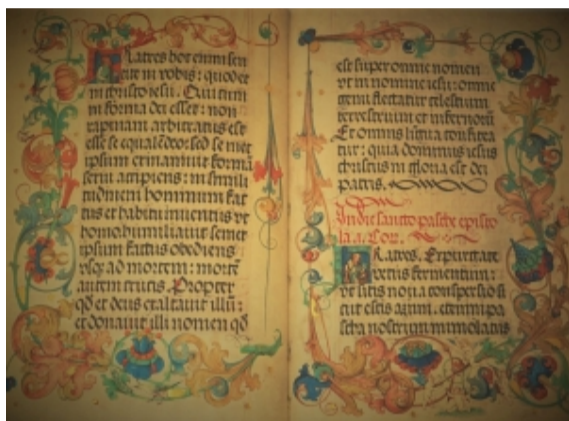 Fratres hoc enim sen
tite in vobis: quod et
in christo iesu. Qui cum
in forma dei esset: non
rapinam arbitratus est
esse se equalē deo: sed se met
ipsum exinaniuit formā
serui accipiens: in simili
tudinem hominum fac
tus et habitu inuentus vt
homo humiliauit semet
ipsum factus obediens
vsq; ad mortem: mortē
autem crucis. Propter
qd̄ et deus exaltauit illū:
et donauit illi nomen qd̄
est super omne nomen
vt in nomine iesu: omne
genu flectatur celestium
terrestrium et infernorū
Et omnis lingua confitea
tur: quia dominus iesus
christus in gloria est dei
patris.
In die sancto pasche episto
la .1. Cor.
Fratres. Expurgate
vetus fermentum:
vt sitis noua conspersio si
cut estis azimi. etenim pa
scha nostrum immolatus